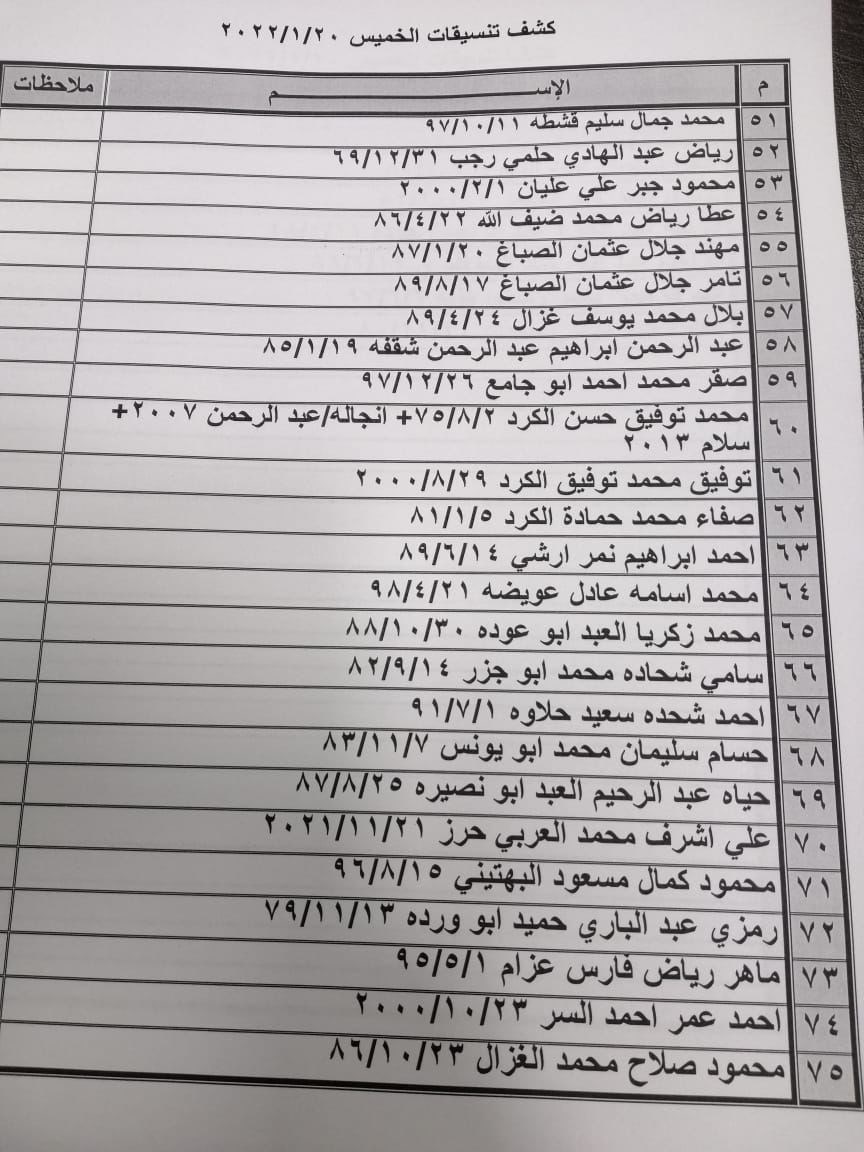 كشف تنسيقات الخميس ٢٠٢٢/١/٢٠
م الإســـــــــــم ملاحظات
٥١ محمد جمال سليم قشطه ٩٧/١٠/١١
٥٢ رياض عبد الهادي حلمي رجب ٦٩/١٢/٣١
٥٣ محمود جبر علي عليان ٢٠٠٠/٢/١
٥٤ عطا رياض محمد ضيف الله ٨٦/٤/٢٢
٥٥ مهند جلال عثمان الصباغ ٨٧/١/٢٠
٥٦ تامر جلال عثمان الصباغ ٨٩/٨/١٧
٥٧ بلال محمد يوسف غزال ٨٩/٤/٢٤
٥٨ عبد الرحمن ابراهيم عبد الرحمن شقفه ٨٥/١/١٩
٥٩ صقر محمد احمد ابو جامع ٩٧/١٢/٢٦
٦٠ محمد توفيق حسن الكرد ٧٥/٨/٢+ انجاله/عبد الرحمن ٢٠٠٧+
سلام ٢٠١٣
٦١ توفيق محمد توفيق الكرد ٢٠٠٠/٨/٢٩
٦٢ صفاء محمد حمادة الكرد ٨١/١/٥
٦٣ احمد ابراهيم نمر ارشي ٨٩/٦/١٤
٦٤ محمد اسامه عادل عويضه ٩٨/٤/٢١
٦٥ محمد زكريا العبد ابو عوده ٨٨/١٠/٣٠
٦٦ سامي شحاده محمد ابو جزر ٨٢/٩/١٤
٦٧ احمد شحده سعيد حلاوه ٩١/٧/١
٦٨ حسام سليمان محمد ابو يونس ٨٣/١١/٧
٦٩ حياه عبد الرحيم العبد ابو نصيره ٨٧/٨/٢٥
٧٠ علي اشرف محمد العربي حرز ٢٠٢١/١١/٢١
٧١ محمود كمال مسعود البهتيني ٩٦/٨/١٥
٧٢ رمزي عبد الباري حميد ابو ورده ٧٩/١١/١٣
٧٣ ماهر رياض فارس عزام ٩٥/٥/١
٧٤ احمد عمر احمد السر ٢٠٠٠/١٠/٢٣
٧٥ محمود صلاح محمد الغزال ٨٦/١٠/٢٣